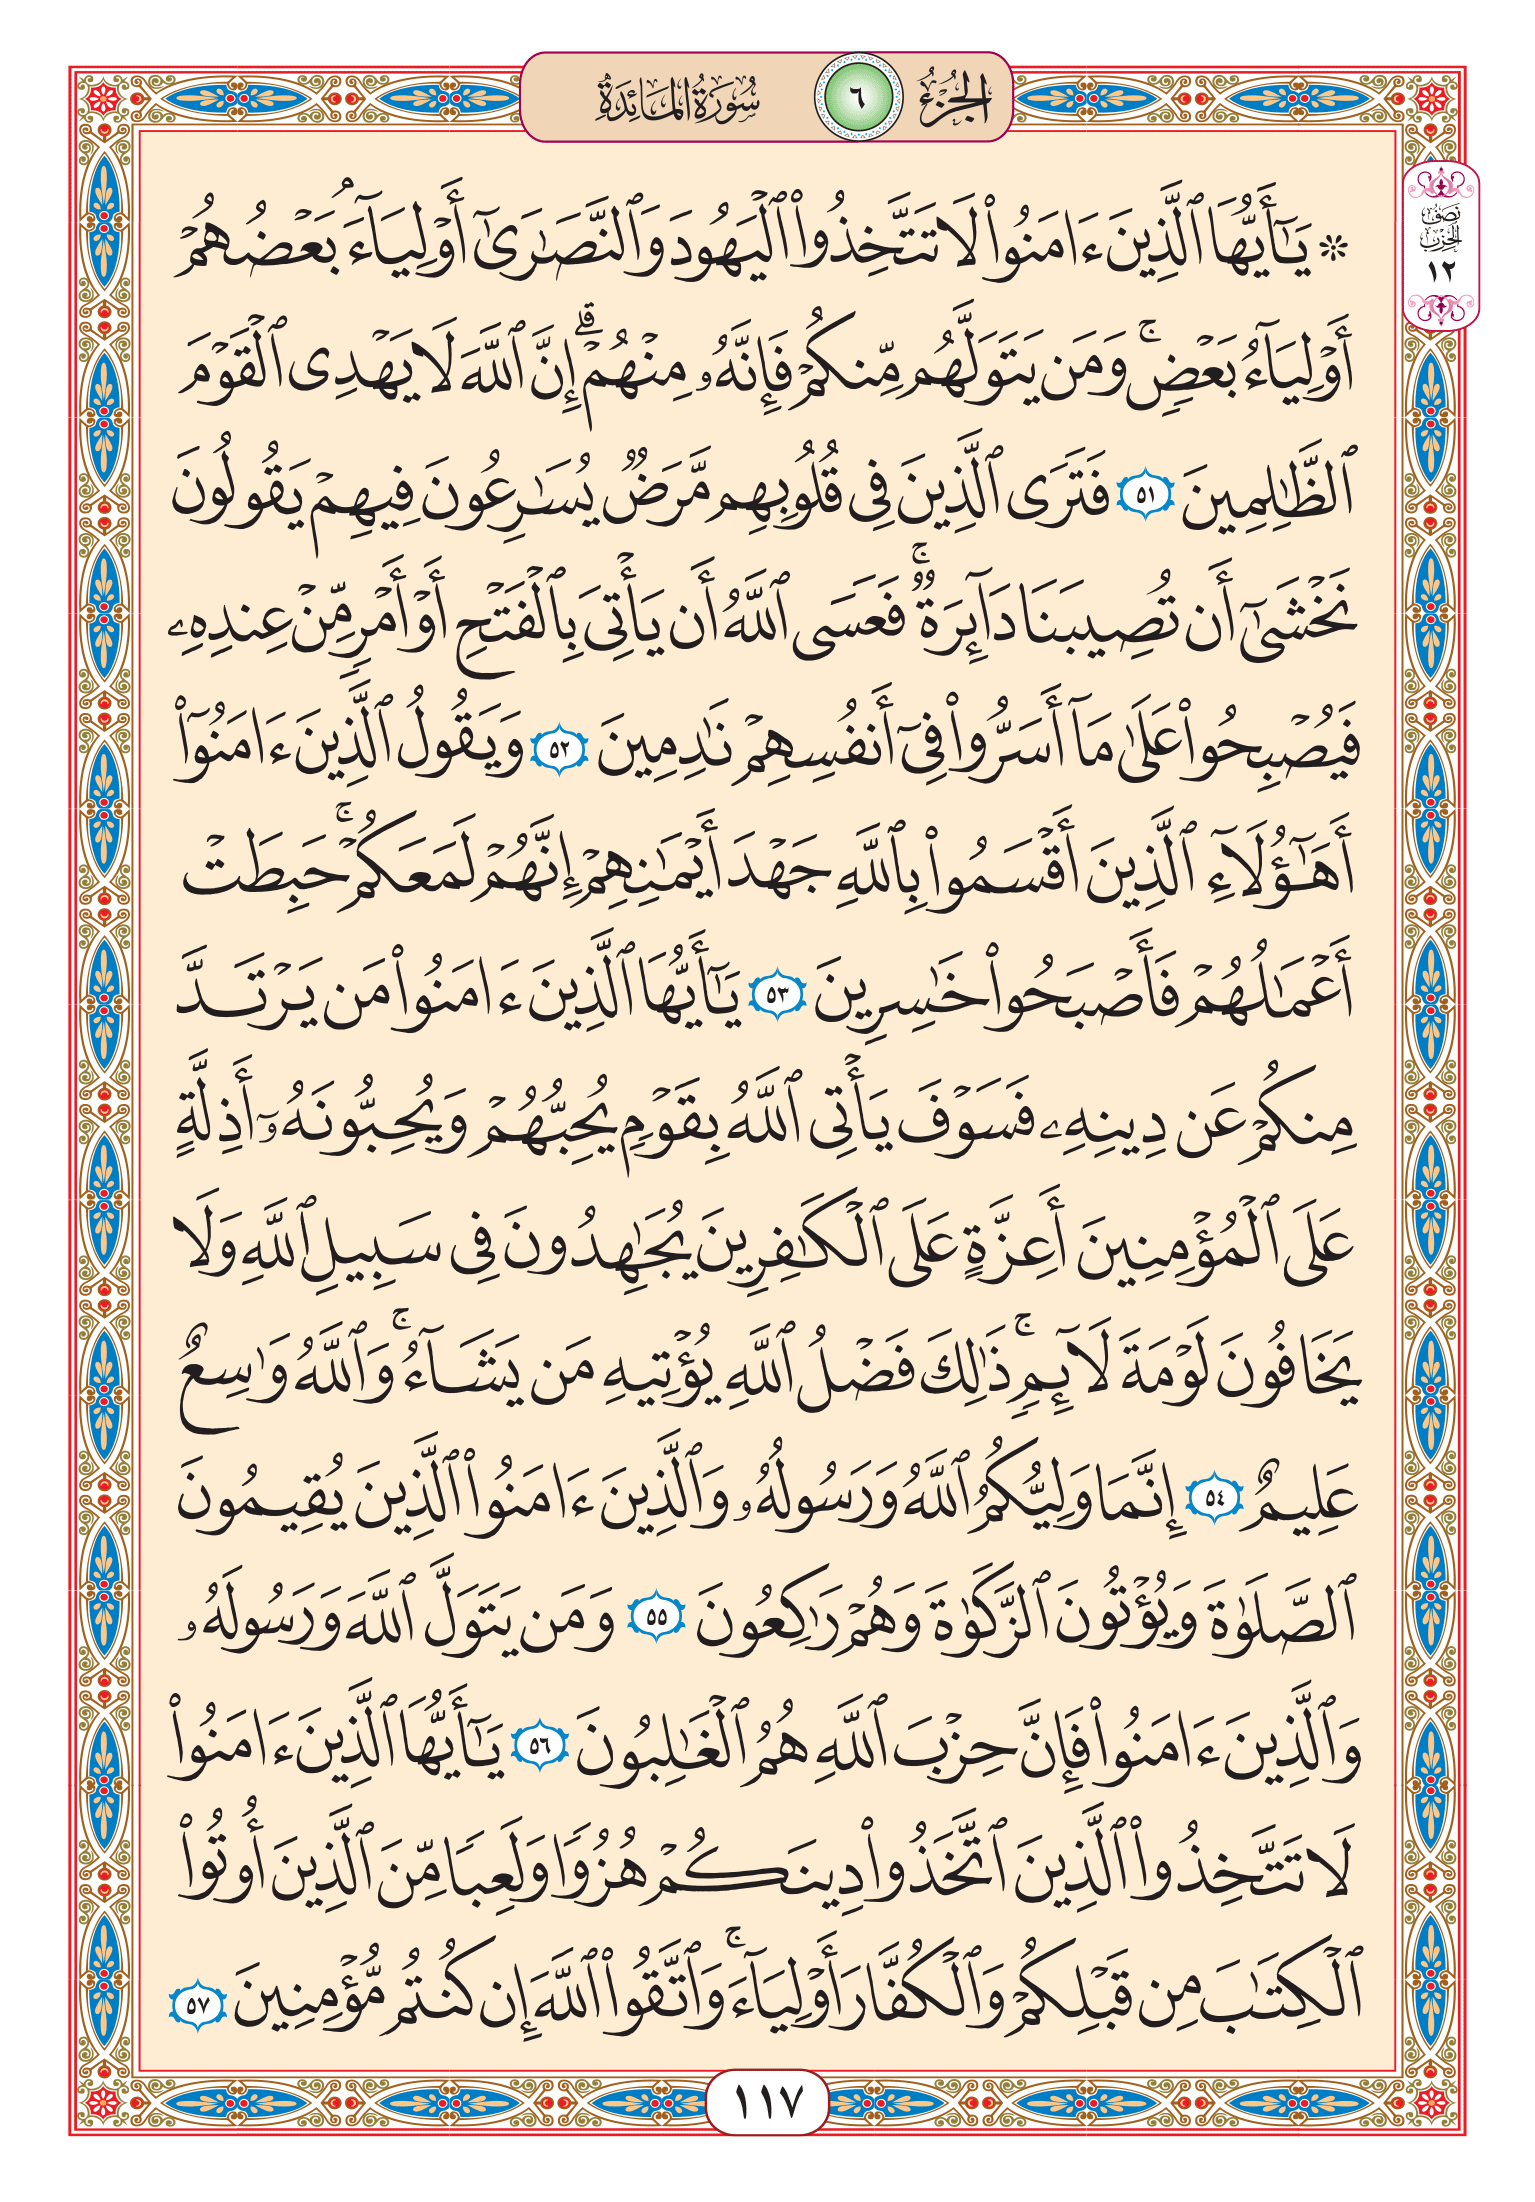 الجزء ٦ سورة المائدة
نصف الحزب ١٢
۞ يَٰٓأَيُّهَا ٱلَّذِينَ ءَامَنُوا۟ لَا تَتَّخِذُوا۟ ٱلْيَهُودَ وَٱلنَّصَٰرَىٰٓ أَوْلِيَآءَ ۘ بَعْضُهُمْ
أَوْلِيَآءُ بَعْضٍ ۚ وَمَن يَتَوَلَّهُم مِّنكُمْ فَإِنَّهُۥ مِنْهُمْ ۗ إِنَّ ٱللَّهَ لَا يَهْدِى ٱلْقَوْمَ
ٱلظَّٰلِمِينَ ٥١ فَتَرَى ٱلَّذِينَ فِى قُلُوبِهِم مَّرَضٌ يُسَٰرِعُونَ فِيهِمْ يَقُولُونَ
نَخْشَىٰٓ أَن تُصِيبَنَا دَآئِرَةٌ ۚ فَعَسَى ٱللَّهُ أَن يَأْتِىَ بِٱلْفَتْحِ أَوْ أَمْرٍ مِّنْ عِندِهِۦ
فَيُصْبِحُوا۟ عَلَىٰ مَآ أَسَرُّوا۟ فِىٓ أَنفُسِهِمْ نَٰدِمِينَ ٥٢ وَيَقُولُ ٱلَّذِينَ ءَامَنُوٓا۟
أَهَٰٓؤُلَآءِ ٱلَّذِينَ أَقْسَمُوا۟ بِٱللَّهِ جَهْدَ أَيْمَٰنِهِمْ إِنَّهُمْ لَمَعَكُمْ ۚ حَبِطَتْ
أَعْمَٰلُهُمْ فَأَصْبَحُوا۟ خَٰسِرِينَ ٥٣ يَٰٓأَيُّهَا ٱلَّذِينَ ءَامَنُوا۟ مَن يَرْتَدَّ
مِنكُمْ عَن دِينِهِۦ فَسَوْفَ يَأْتِى ٱللَّهُ بِقَوْمٍ يُحِبُّهُمْ وَيُحِبُّونَهُۥٓ أَذِلَّةٍ
عَلَى ٱلْمُؤْمِنِينَ أَعِزَّةٍ عَلَى ٱلْكَٰفِرِينَ يُجَٰهِدُونَ فِى سَبِيلِ ٱللَّهِ وَلَا
يَخَافُونَ لَوْمَةَ لَآئِمٍ ۚ ذَٰلِكَ فَضْلُ ٱللَّهِ يُؤْتِيهِ مَن يَشَآءُ ۚ وَٱللَّهُ وَٰسِعٌ
عَلِيمٌ ٥٤ إِنَّمَا وَلِيُّكُمُ ٱللَّهُ وَرَسُولُهُۥ وَٱلَّذِينَ ءَامَنُوا۟ ٱلَّذِينَ يُقِيمُونَ
ٱلصَّلَوٰةَ وَيُؤْتُونَ ٱلزَّكَوٰةَ وَهُمْ رَٰكِعُونَ ٥٥ وَمَن يَتَوَلَّ ٱللَّهَ وَرَسُولَهُۥ
وَٱلَّذِينَ ءَامَنُوا۟ فَإِنَّ حِزْبَ ٱللَّهِ هُمُ ٱلْغَٰلِبُونَ ٥٦ يَٰٓأَيُّهَا ٱلَّذِينَ ءَامَنُوا۟
لَا تَتَّخِذُوا۟ ٱلَّذِينَ ٱتَّخَذُوا۟ دِينَكُمْ هُزُوًا وَلَعِبًا مِّنَ ٱلَّذِينَ أُوتُوا۟
ٱلْكِتَٰبَ مِن قَبْلِكُمْ وَٱلْكُفَّارَ أَوْلِيَآءَ ۚ وَٱتَّقُوا۟ ٱللَّهَ إِن كُنتُم مُّؤْمِنِينَ ٥٧
١١٧